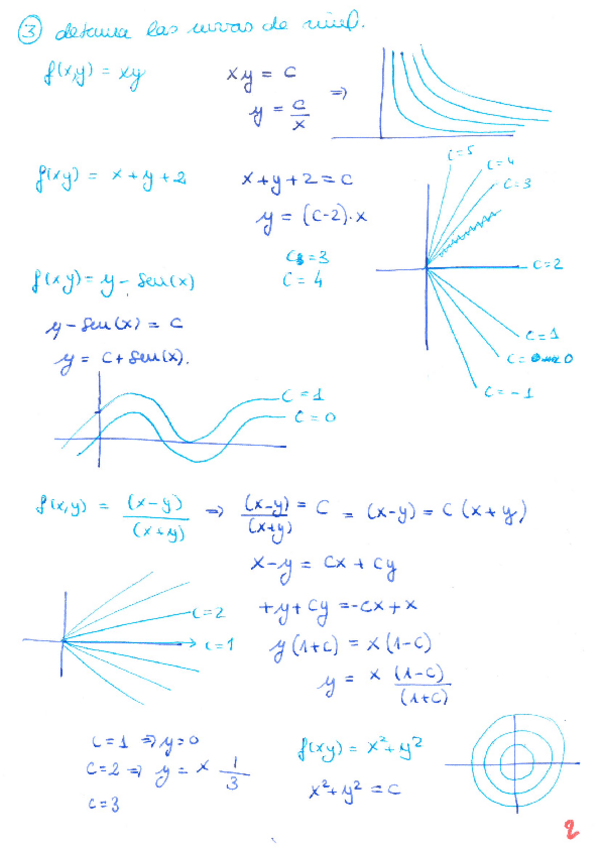 ③ determina las curvas de nivel.
f(x,y) = xy
xy = C
y = C/x ⇒
f(xy) = x+y+2
x+y+2 = C
y = (C-2)·x
C=5
C=4
C=3
C=2
C=1
C= 0
C=-1
C = 3
C = 4
f(x,y) = y - Sen(x)
y - Sen(x) = C
y = C + Sen(x).
C=1
C=0
f(x,y) = (x-y)/(x+y) ⇒ (x-y)/(x+y) = C = (x-y) = C (x+y)
x-y = Cx + Cy
+y+Cy = -Cx+x
y(1+C) = x(1-C)
y = x (1-C)/(1+C)
C=2
C=1
C=1 ⇒ y=0
C=2 ⇒ y = x 1/3
C=3
f(xy) = x²+y²
x²+y² = C
2